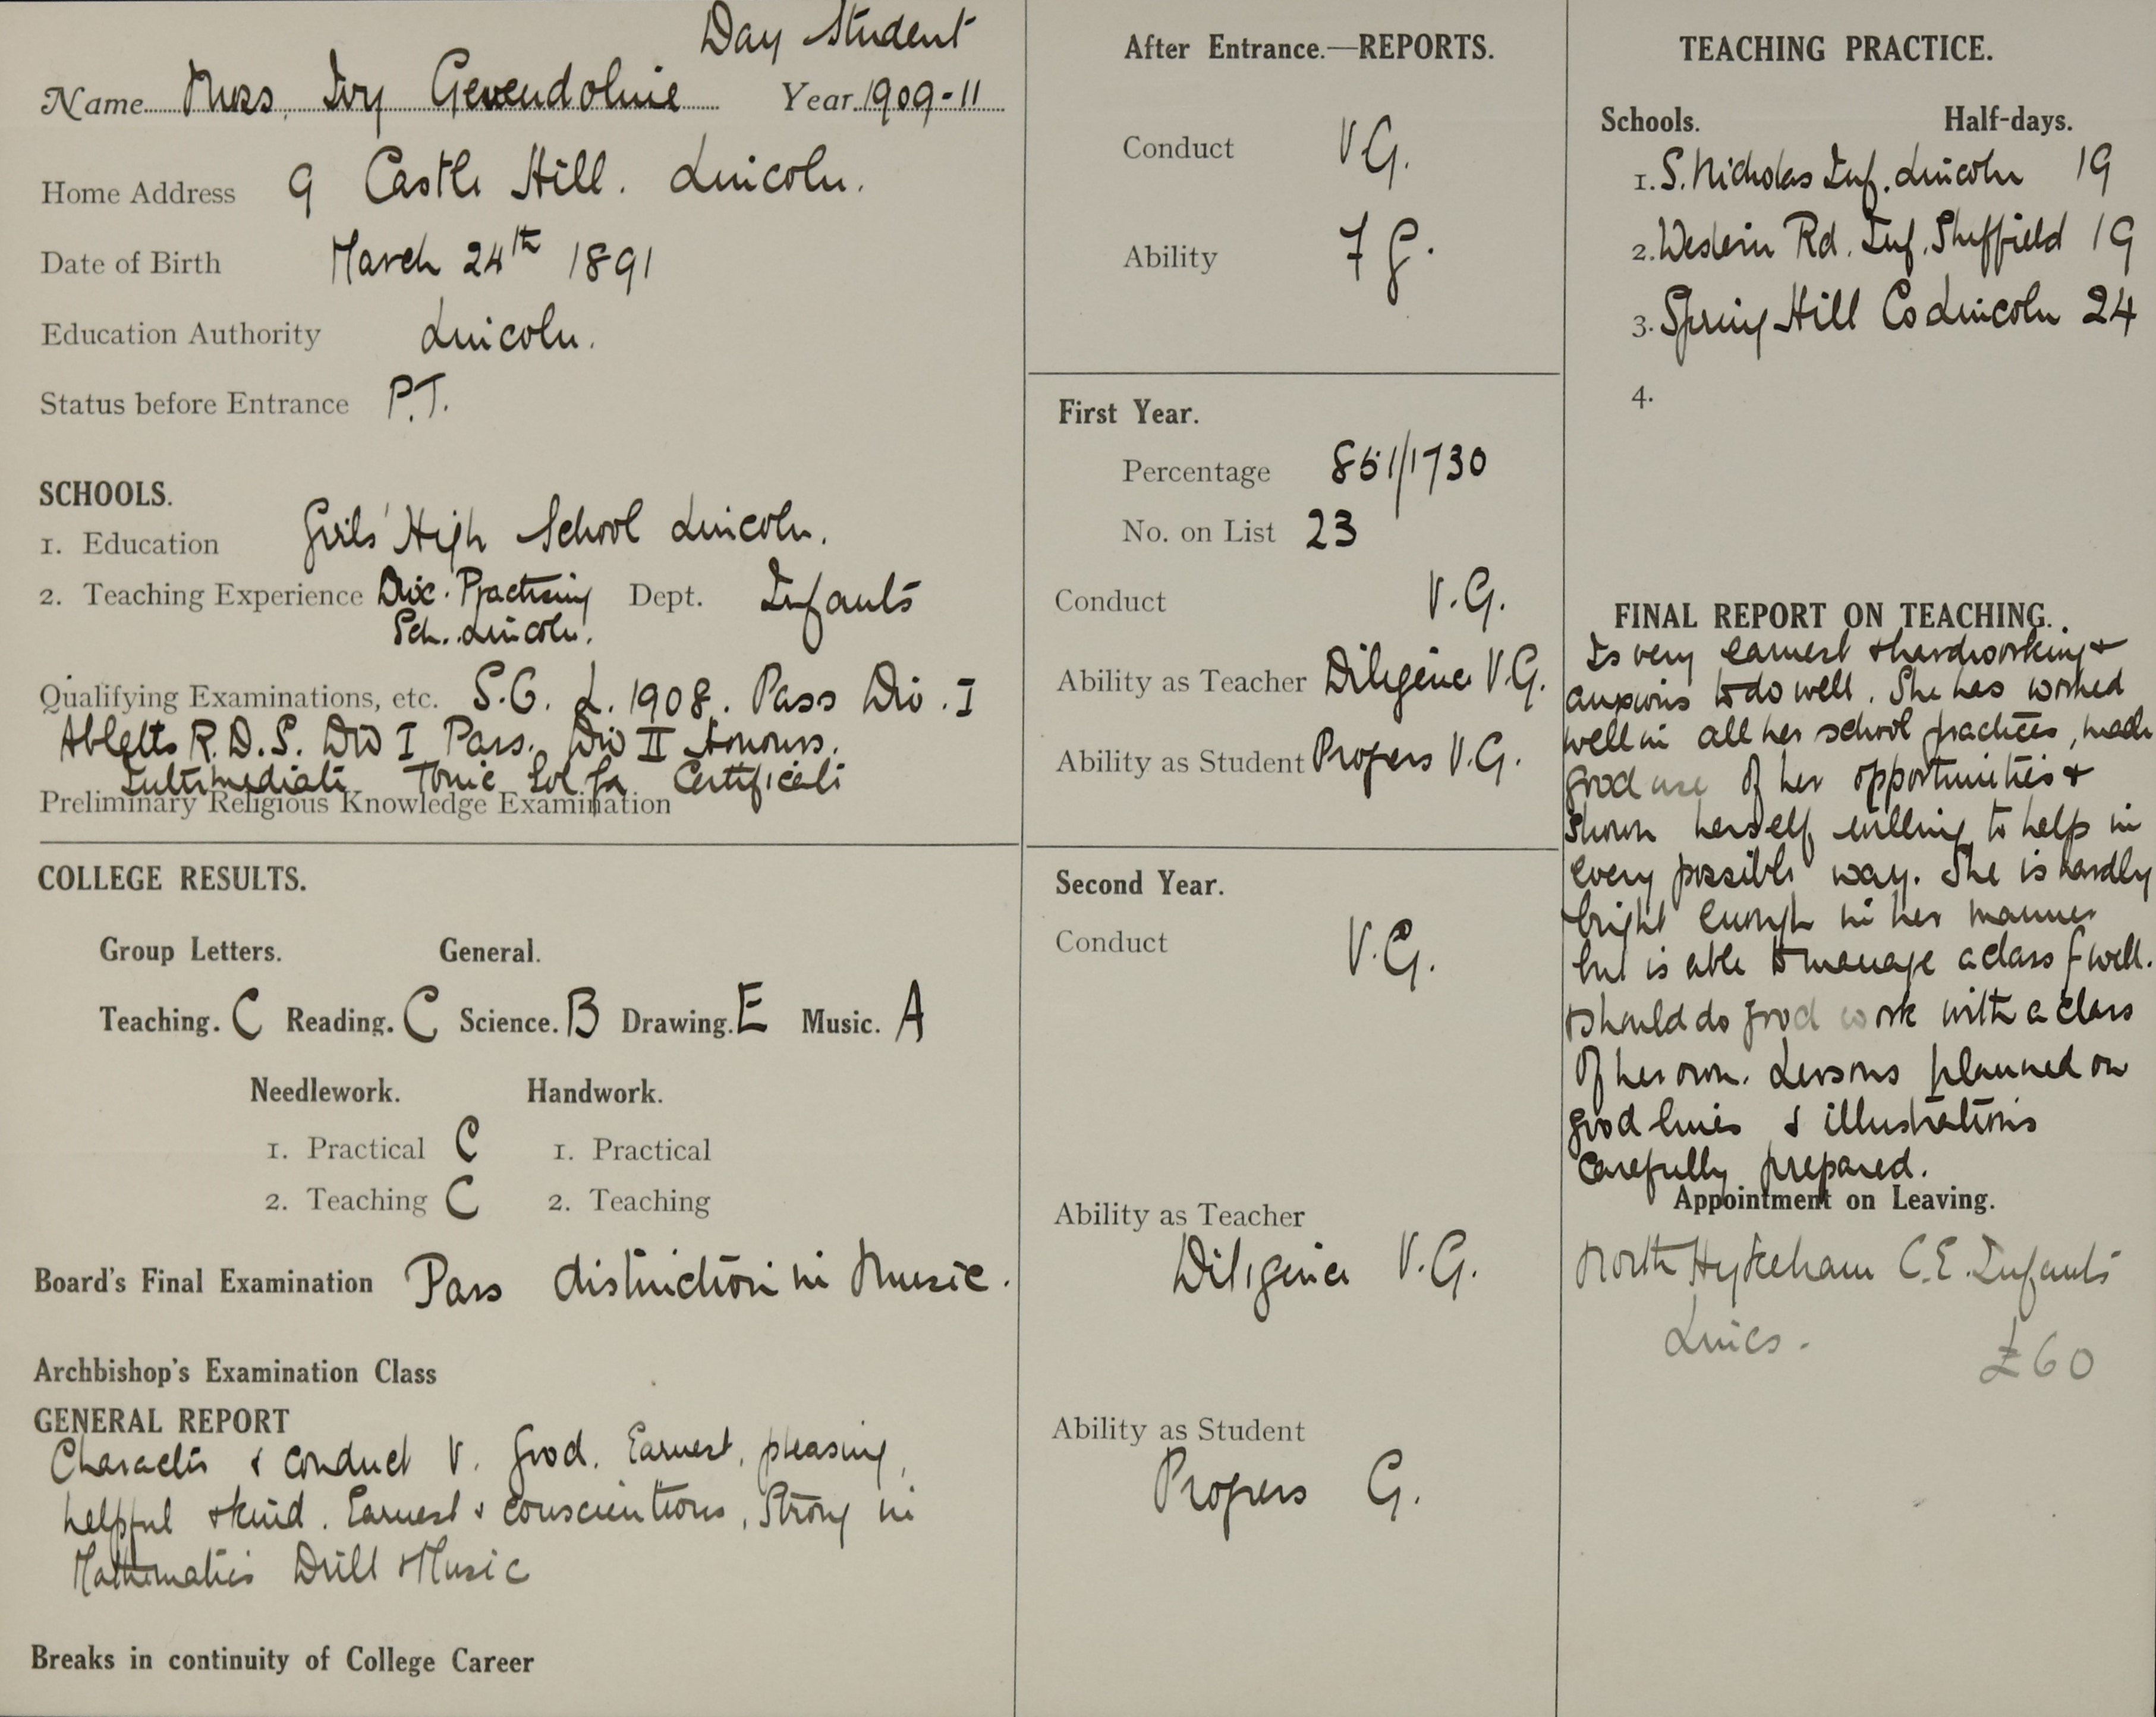 Day Student
Name Moss, Ivy Gevendoline Year 1909-11
Home Address 9 Castle Hill. Lincoln.
Date of Birth March 24th 1891
Education Authority Lincoln.
Status before Entrance P.T.
SCHOOLS.
1. Education Girls' High School Lincoln.
2. Teaching Experience Dioc. Practising Dept. Infants
Sch. Lincoln.
Qualifying Examinations, etc. S.C. L. 1908. Pass Div. I
Abletts R.D.S. Div I Pass. Div II Honours.
Intermediate Tonic Sol fa Certificate
Preliminary Religious Knowledge Examination
COLLEGE RESULTS.
Group Letters. General.
Teaching. C Reading. C Science. B Drawing. E Music. A
Needlework. Handwork.
1. Practical C 1. Practical
2. Teaching C 2. Teaching
Board's Final Examination Pass distinction in Music.
Archbishop's Examination Class
GENERAL REPORT
Character & conduct V. Good. Earnest, pleasing,
helpful & kind. Earnest & conscientious, Strong in
Mathematics Drill & Music
Breaks in continuity of College Career
After Entrance.—REPORTS.
Conduct V.G.
Ability F g.
First Year.
Percentage 851/1730
No. on List 23
Conduct V.G.
Ability as Teacher Diligence V.G.
Ability as Student Progress V.G.
Second Year.
Conduct V.G.
Ability as Teacher
Diligence V.G.
Ability as Student
Progress G.
TEACHING PRACTICE.
Schools. Half-days.
1. S. Nicholas Inf. Lincoln 19
2. Western Rd. Inf. Sheffield 19
3. Spring Hill Co Lincoln 24
4.
FINAL REPORT ON TEACHING.
Is very earnest & hardworking &
anxious to do well. She has worked
well in all her school practices, made
good use of her opportunities &
shown herself willing to help in
every possible way. She is hardly
bright enough in her manner
but is able to manage a class f well.
& should do good work with a class
of her own. Lessons planned on
good lines & illustrations
carefully prepared.
Appointment on Leaving.
North Hykeham C.E. Infants
Lincs.
£60